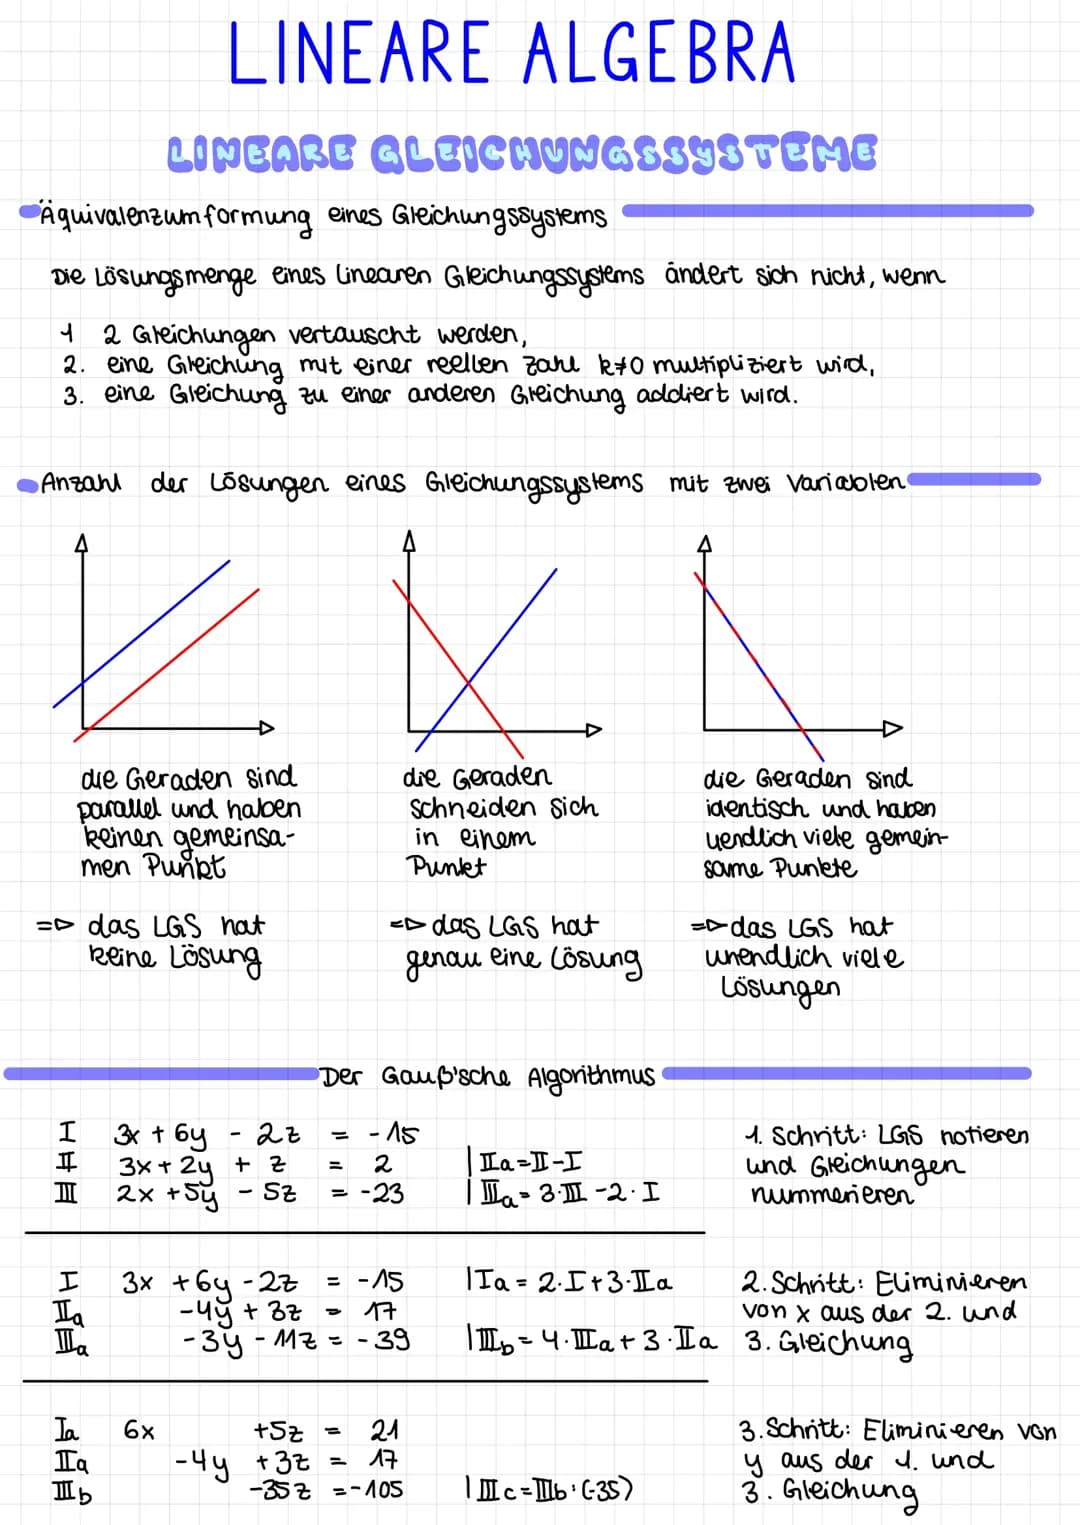 LINEARE ALGEBRA
LINEARE GLEICHUNGSSYSTEME
Äquivalenzumformung eines Gleichungssystems
Die Lösungsmenge eines linearen Gleichungssystems ändert sich nicht, wenn
1 2 Gleichungen vertauscht werden,
2. eine Gleichung mit einer reellen Zahl k≠0 multipliziert wird,
3. eine Gleichung zu einer anderen Gleichung addiert wird.
Anzahl der Lösungen eines Gleichungssystems mit zwei Variablen
die Geraden sind
parallel und haben
keinen gemeinsa-
men Punkt
=> das LGS hat
keine Lösung
die Geraden
schneiden sich
in einem
Punkt
=> das LGS hat
genau eine Lösung
die Geraden sind
identisch und haben
uendlich viele gemein-
same Punkte
=> das LGS hat
unendlich viele
Lösungen
Der Gauß'sche Algorithmus
I 3x + 6y - 2z = -15
II 3x + 2y + z = 2 | IIa = II - I
III 2x + 5y - 5z = -23 | IIIa = 3·III - 2·I
1. Schritt: LGS notieren
und Gleichungen
nummerieren
I 3x + 6y - 2z = -15 | Ia = 2·I + 3·IIa
IIa -4y + 3z = 17
IIIa -3y - 11z = -39 | IIIb = 4·IIIa + 3·IIa
2. Schritt: Eliminieren
von x aus der 2. und
3. Gleichung
Ia 6x +5z = 21
IIa -4y + 3z = 17
IIIb -35z = -105 | IIIc = IIIb : (-35)
3. Schritt: Eliminieren von
y aus der 1. und
3. Gleichung